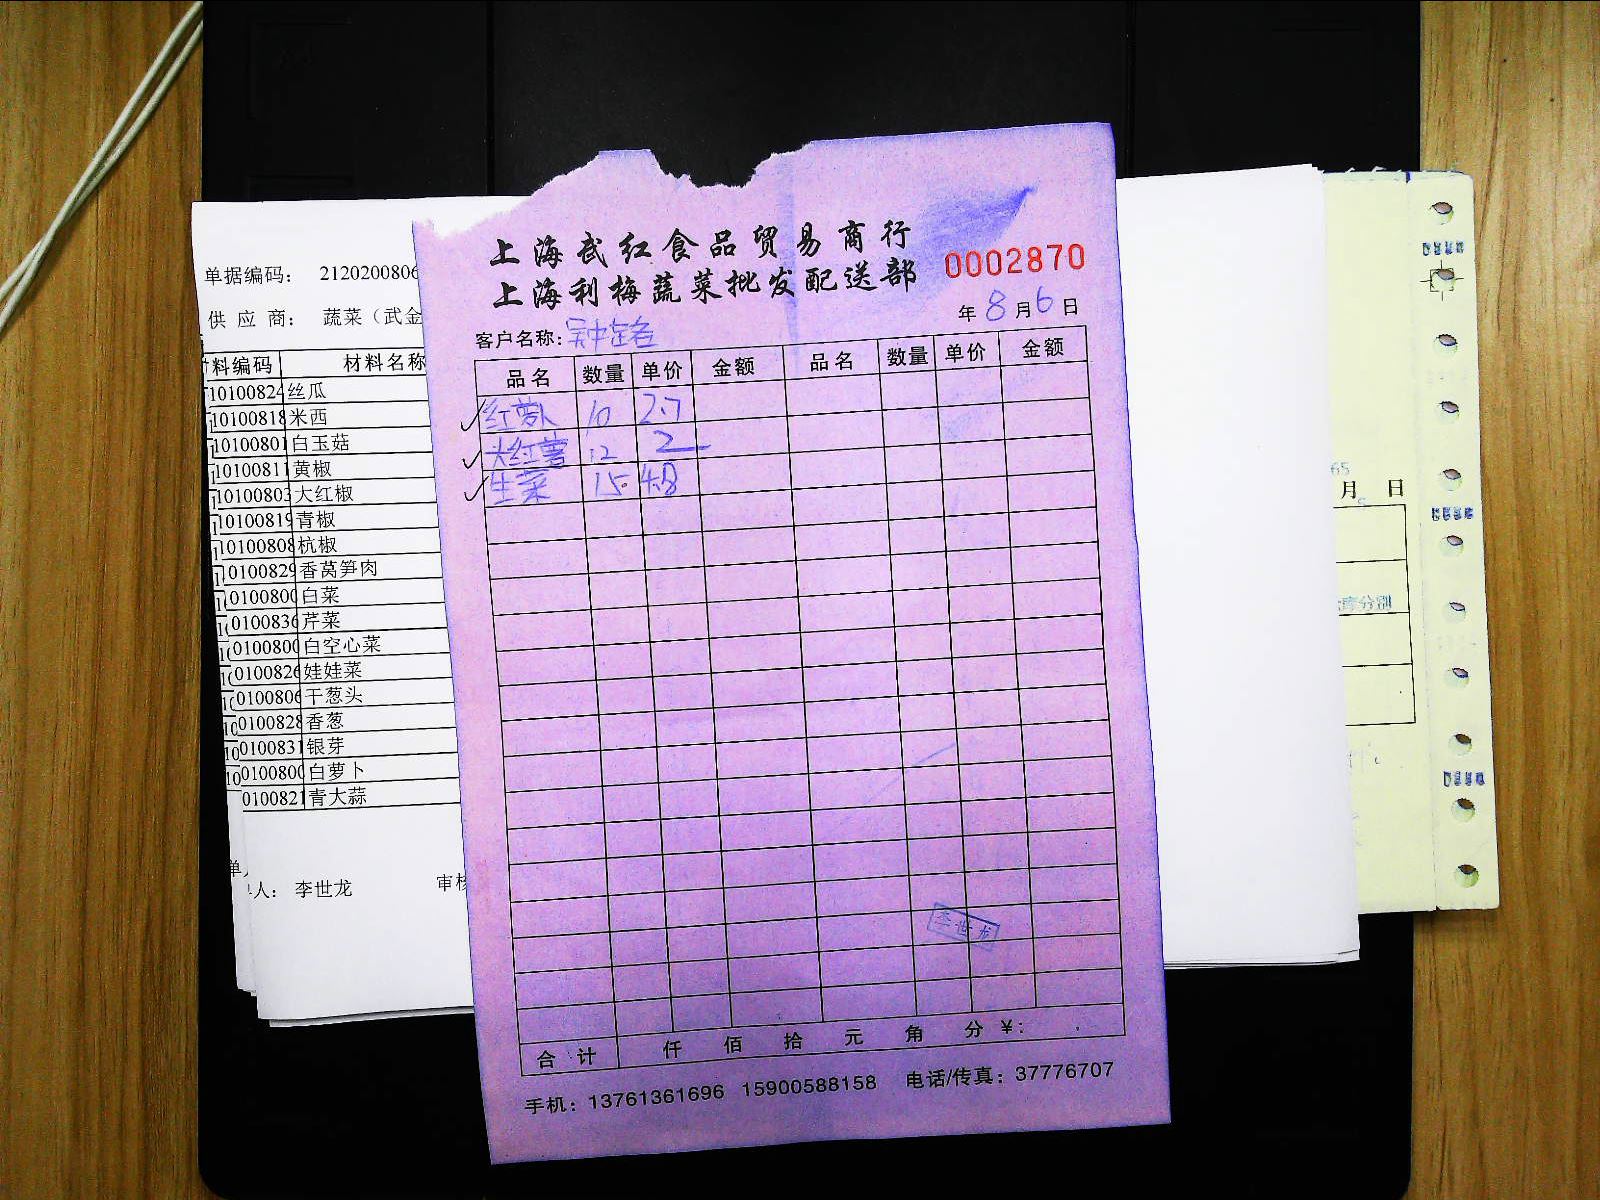 上海武红食品贸易商行
上海利梅蔬菜批发配送部
0002870
年 8 月 6 日
客户名称: 吴中路店
品名 数量 单价 金额 品名 数量 单价 金额
红萝卜 10 2.7
大红薯 12 2
生菜 15 4.8
合计 仟 佰 拾 元 角 分 ¥:
手机: 13761361696 15900588158 电话/传真: 37776707
李世龙
单据编码: 2120200806
供应商: 蔬菜（武金
料编码 材料名称
10100824 丝瓜
10100818 米西
10100801 白玉菇
10100811 黄椒
10100803 大红椒
10100819 青椒
10100808 杭椒
0100829 香莴笋肉
0100800 白菜
0100836 芹菜
0100800 白空心菜
0100826 娃娃菜
0100806 干葱头
0100828 香葱
0100831 银芽
0100800 白萝卜
0100821 青大蒜
单人: 李世龙 审核
65
月 日
库分别